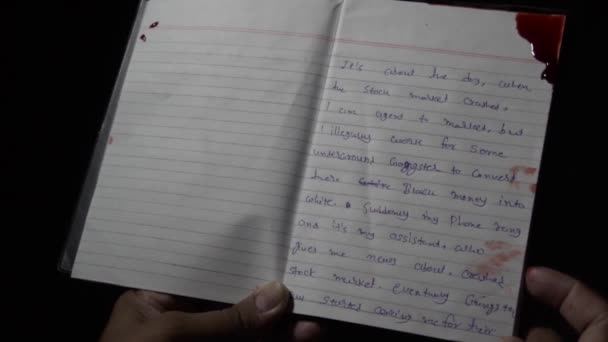 It's about the day, when
the stock market crashed.
I am agent to market, but
I illegaly work for some
underground Gangster to convert
there Black money into
white. Suddenly my Phone rang
and it's my assistant, who
gives me news about. Crashed
stock market. Eventualy Gangster
started calling me for their